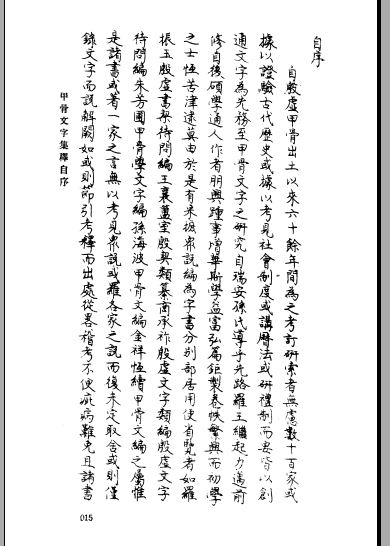 自序
自殷虛甲骨出土以來六十餘年間為之考訂研索者無慮數十百家或
據以證驗古代歷史或據以考見社會制度或講曆法或研禮制而要皆以創
通文字為先務至甲骨文字之研究自瑞安孫氏導乎先路羅王繼起力邁前
修自後碩學通人作者朋興踵事增華斯學益富弘篇鉅製卷帙繁興而初學
之士恆苦津逮莫由於是有采摭眾說編為字書分別部居用便省覽者如羅
振玉殷虛書契待問編王襄簠室殷契類纂商承祚殷虛文字類編殷虛文字
待問編朱芳圃甲骨學文字編孫海波甲骨文編金祥恆續甲骨文編之屬惟
是諸書或著一家之言無以考見眾說或羅各家之說而復未定取舍或則僅
錄文字而說解闕如或則節引考釋而出處從畧稽考不便疵病難免且諸書
甲骨文字集釋自序
015